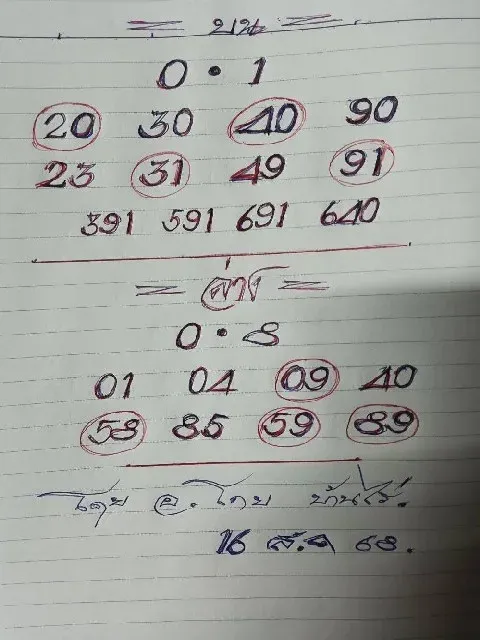 = บน =
0 • 1
20 30 40 90
23 31 49 91
391 591 691 640
= ล่าง =
0 • 8
01 04 09 40
58 85 59 89
โดย อ. โกย บ้านไร่.
16 ส.ค 68.